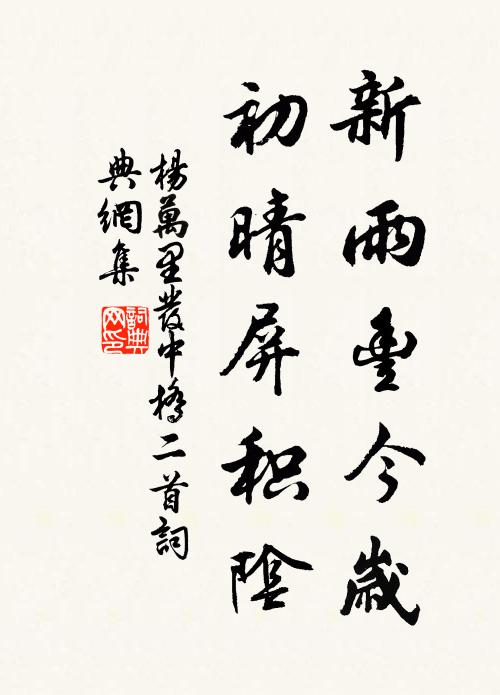 新雨豊今歲
初晴屏积陰
楊萬里發中橋二首詞
典網集
詞典网印